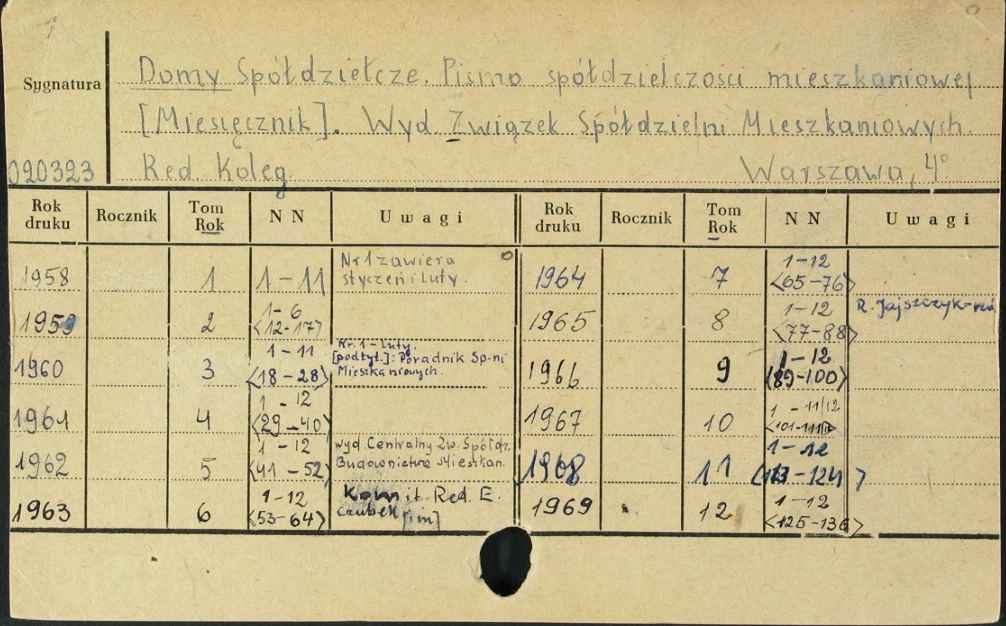 Sygnatura
Domy Spółdzielcze. Pismo spółdzielczości mieszkaniowej
[Miesięcznik]. Wyd. Związek Spółdzielni Mieszkaniowych.
020323 Red. Koleg. Warszawa, 4°
Rok druku Rocznik Tom Rok NN Uwagi Rok druku Rocznik Tom Rok NN Uwagi
1958 1 1-11 Nr 1 zawiera styczeń i luty. 1964 7 1-12 <65-76>
1959 2 1-6 <12-17> 1965 8 1-12 <77-88> R. Jajszczyk-
1960 3 1-11 <18-28> Nr. 1-luty. [podtyt.]: Poradnik Sp-ni Mieszkaniowych. 1966 9 1-12 <89-100>
1961 4 1-12 <29-40> 1967 10 1-11/12
1962 5 1-12 <41-52> wyd. Centralny Zw. Spółdz. Budownictwa Mieszkan. 1968 11 1-12 <113-124>
1963 6 1-12 <53-64> Komit. Red. E. Czubek [i in] 1969 12 1-12 <125-136>